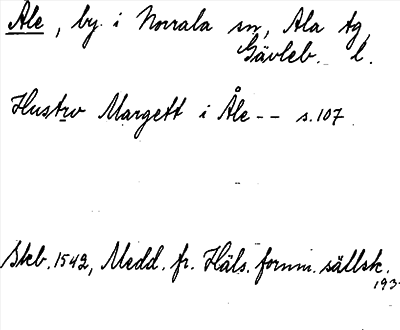 Ale, by i Norrala sn, Ala tg,
Gävleb. l.
Hustrv Margett i Åle -- s. 107
Skb. 1542, Medd. fr. Häls. fornm. sällsk.
193